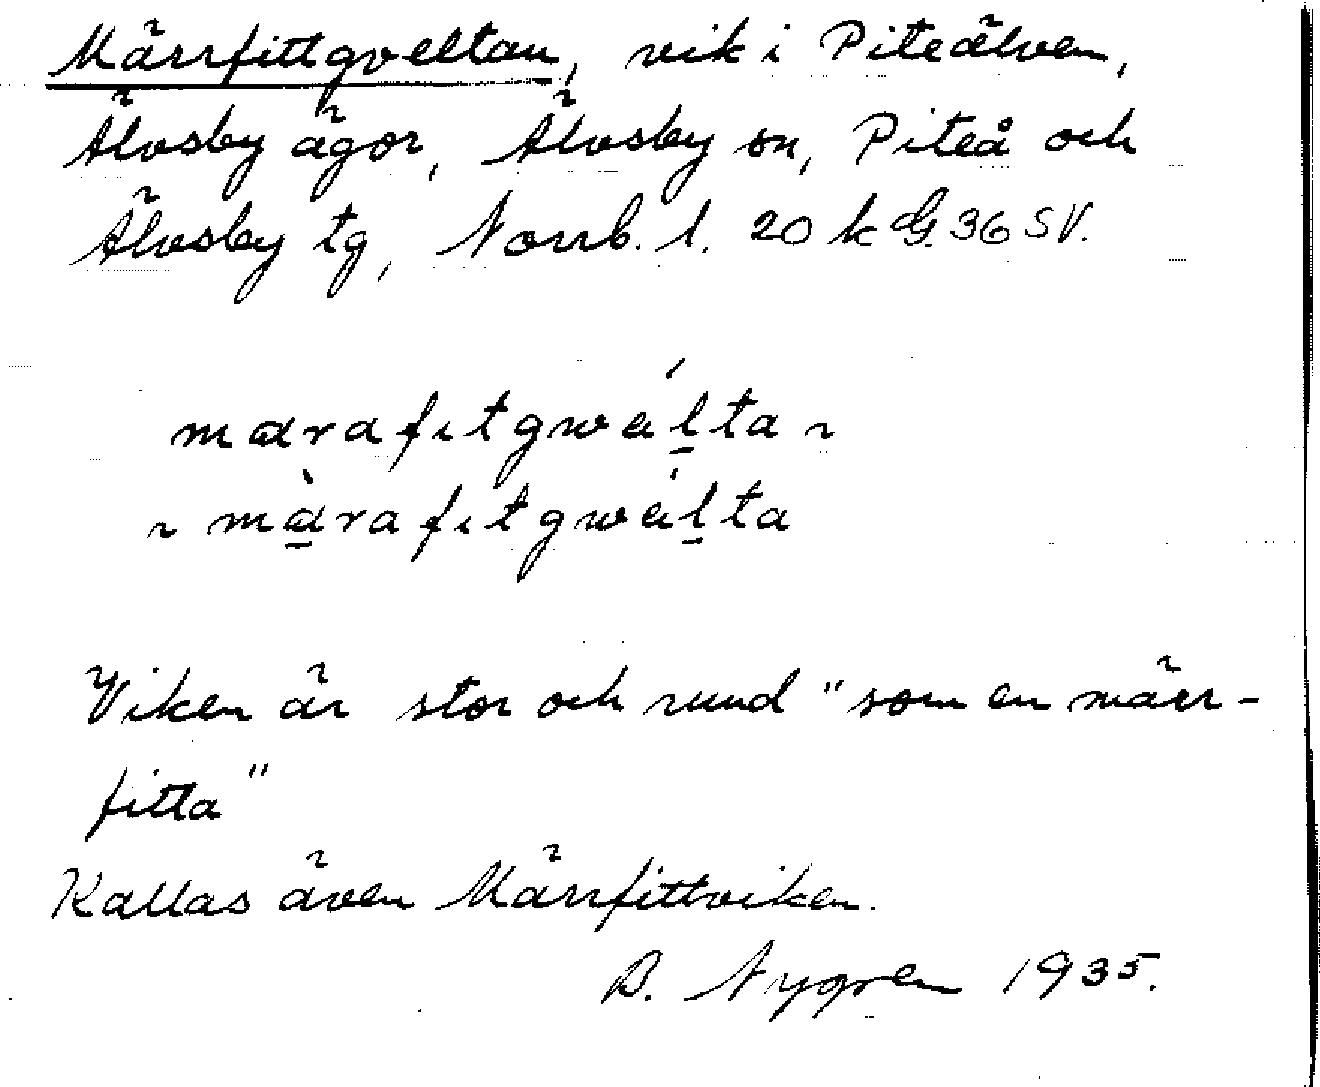 Märrfittgveltan, vik i Piteälven,
Älvsby ägor, Älvsby sn, Piteå och
Älvsby tg, Norrb. l. 20 k G. 36 SV.
marafitgwälta ~
~ màrafitgwälta
Viken är stor och rund "som en märr-
fitta"
Kallas även Märrfittviken.
B. Nygren 1935.